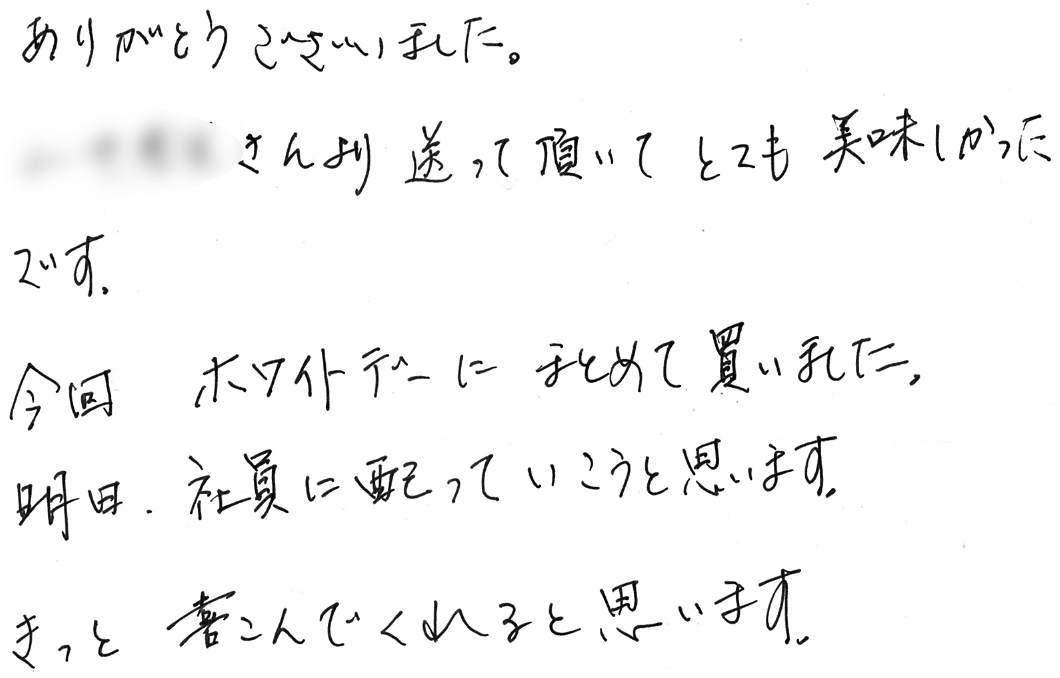 ありがとうございました。
さんより 送って頂いて とても 美味しかった
です。
今回 ホワイトデーに まとめて 買いました。
明日、社員に配っていこうと思います。
きっと 喜こんでくれると思います。